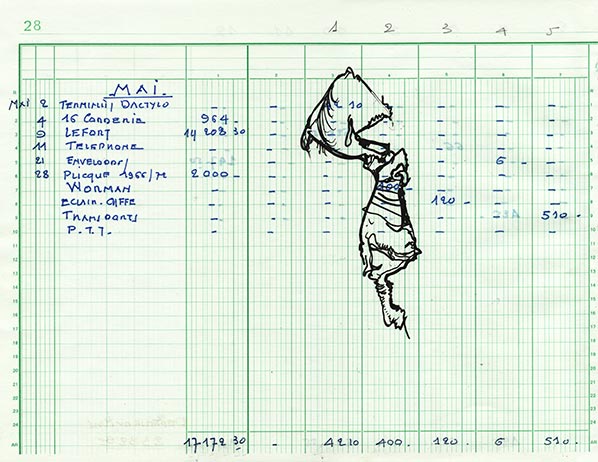 28
1 2 3 4 5
MAI.
MAI 2 TERMINUS DACTYLO - - 4210 - - - -
4 16 GARDENIA 964 - - - - - -
9 LEFORT 14 208 30 - - - - -
11 TELEPHONE - - - - - -
21 - - - - 6 - -
28 2000 - - - - - -
WORMAN - - - 400 - - - -
- - - 120 - - -
TRANSPORTS - - - - - 510 -
P.T.T. - - - - - -
17 172 30 - 4210 400 - 120 - 6 510 -